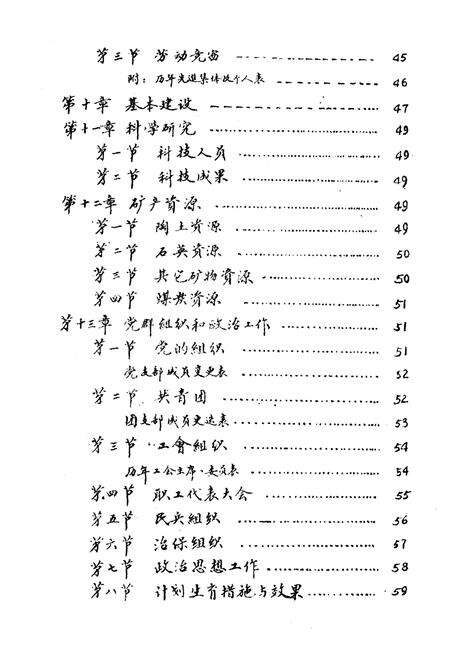 第三节 劳动竞赛 45
附：历年先进集体及个人表 46
第十章 基本建设 47
第十一章 科学研究 49
第一节 科技人员 49
第二节 科技成果 49
第十二章 矿产资源 49
第一节 陶土资源 49
第二节 石英资源 50
第三节 其它矿物资源 50
第四节 煤炭资源 51
第十三章 党群组织和政治工作 51
第一节 党的组织 51
党支部成员变更表 52
第二节 共青团 52
团支部成员更迭表 53
第三节 工會组织 54
历年工会主席、委员表 54
第四节 职工代表大会 55
第五节 民兵组织 56
第六节 治保组织 57
第七节 政治思想工作 58
第八节 计划生育措施与效果 59